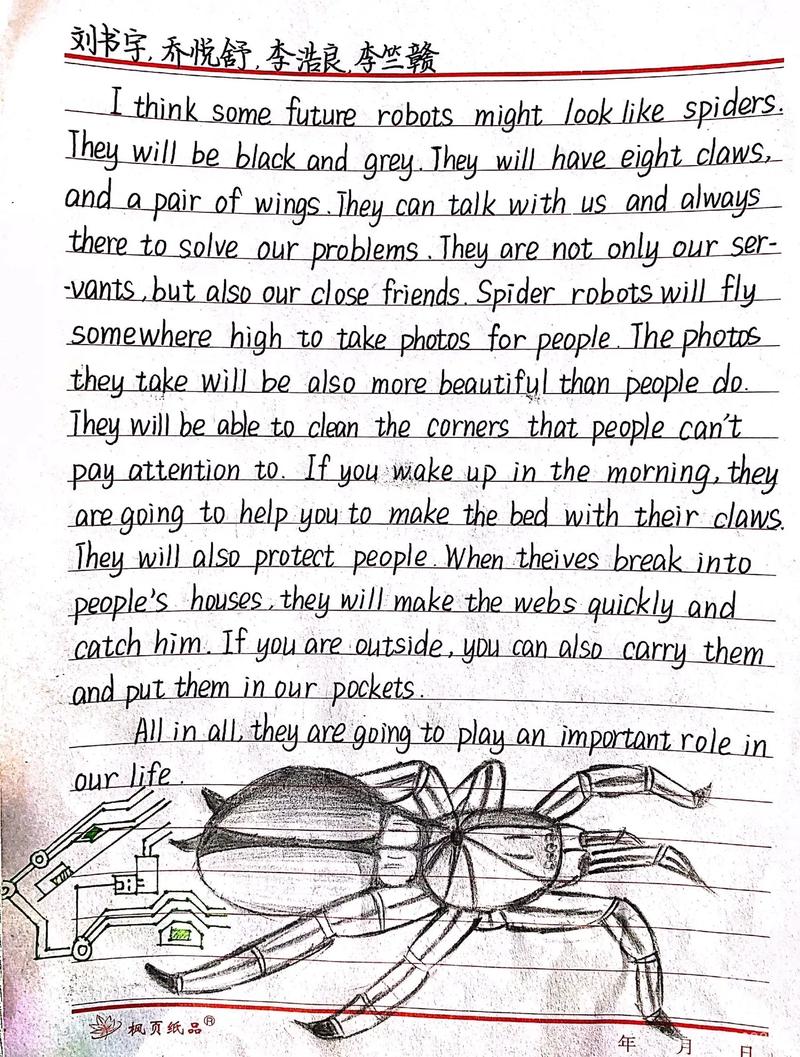 刘书宇,乔悦舒,李浩良,李竺赣
I think some future robots might look like spiders.
They will be black and grey. They will have eight claws,
and a pair of wings. They can talk with us and always
there to solve our problems. They are not only our ser-
-vants, but also our close friends. Spider robots will fly
somewhere high to take photos for people. The photos
they take will be also more beautiful than people do.
They will be able to clean the corners that people can't
pay attention to. If you wake up in the morning, they
are going to help you to make the bed with their claws.
They will also protect people. When theives break into
people's houses, they will make the webs quickly and
catch him. If you are outside, you can also carry them
and put them in our pockets.
All in all, they are going to play an important role in
our life.
枫页纸品®
年 月 日